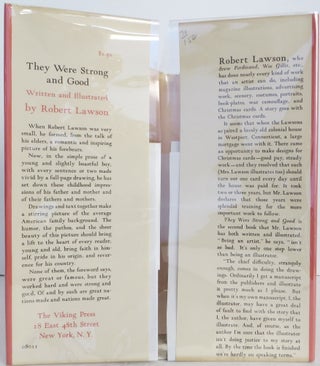 $1.50
They Were Strong
and Good
Written and Illustrated
by Robert Lawson
When Robert Lawson was very
small, he formed, from the talk of
his elders, a romantic and inspiring
picture of his forebears.
Now, in the simple prose of a
young and slightly boastful boy,
with every sentence or two made
vivid by a full-page drawing, he has
set down these childhood impres-
sions of his father and mother and
of their fathers and mothers.
Drawings and text together make
a stirring picture of the average
American family background. The
humor, the pathos, and the sheer
beauty of this picture should bring
a lift to the heart of every reader,
young and old, bring faith in him-
self, pride in his origin, and rever-
ence for his country.
None of them, the foreword says,
were great or famous, but they
worked hard and were strong and
good. Of and by such are great na-
tions made and nations made great.
The Viking Press
18 East 48th Street
New York, N. Y.
Robert Lawson, who
drew Ferdinand, Wee Gillis, etc.,
has done nearly every kind of work
that an artist can do, including
magazine illustrations, advertising
work, scenery, costumes, portraits,
book-plates, war camouflage, and
Christmas cards. A story goes with
the Christmas cards.
It seems that when the Lawsons
acquired a lovely old colonial house
in Westport, Connecticut, a large
mortgage went with it. There came
an opportunity to make designs for
Christmas cards—good pay, steady
work—and they resolved that each
(Mrs. Lawson illustrates too) should
turn out one card every day until
the house was paid for. It took
two or three years, but Mr. Lawson
declares that those years were
splendid training for the more
important work to follow.
They Were Strong and Good is
the second book that Mr. Lawson
has both written and illustrated.
"Being an artist," he says, "isn't
so bad. It's only one step lower
than being an illustrator.
"The chief difficulty, strangely
enough, comes in doing the draw-
ings. Ordinarily I get a manuscript
from the publishers and illustrate
it pretty much as I please. But
when it's my own manuscript, I, the
illustrator, may have a great deal
of fault to find with the story that
I, the author, have given myself to
illustrate. And, of course, as the
author I'm sure that the illustrator
isn't doing justice to my story at
all. By the time the book is finished
we're hardly on speaking terms."